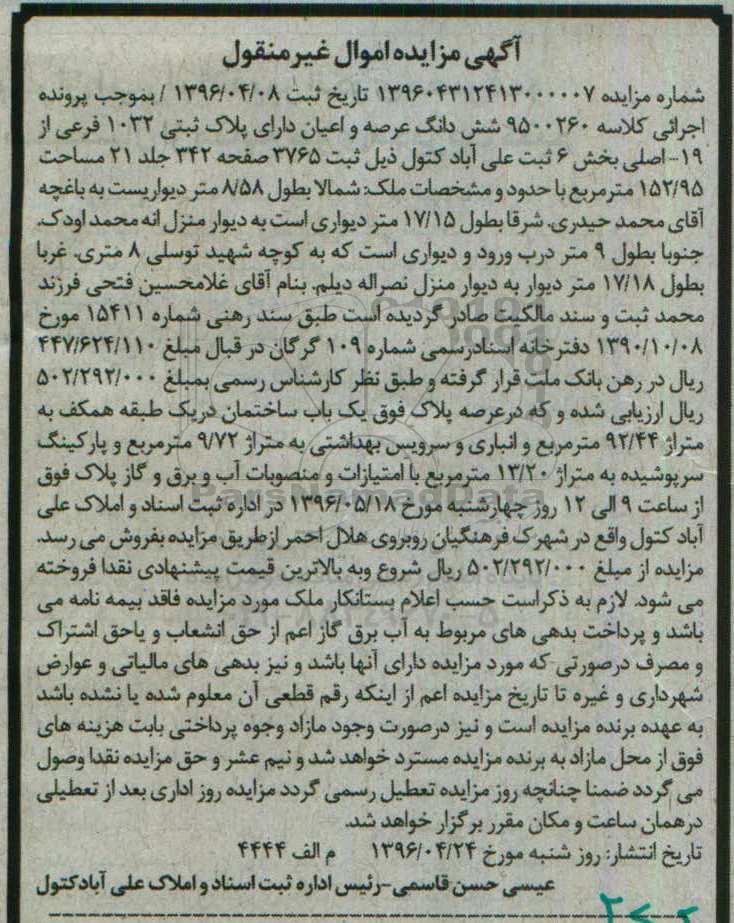 آگهی مزایده اموال غیر منقول
شماره مزایده ۱۳۹۶۰۴۳۱۲۴۱۳۰۰۰۰۰۷ تاریخ ثبت ۱۳۹۶/۰۴/۰۸ / بموجب پرونده
اجرائی کلاسه ۹۵۰۰۲۶۰ شش دانگ عرصه و اعیان دارای پلاک ثبتی ۱۰۳۲ فرعی از
۱۹- اصلی بخش ۶ ثبت علی آباد کتول ذیل ثبت ۳۷۶۵ صفحه ۳۴۲ جلد ۲۱ مساحت
۱۵۲/۹۵ مترمربع با حدود و مشخصات ملک: شمالا بطول ۸/۵۸ متر دیواریست به باغچه
آقای محمد حیدری. شرقا بطول ۱۷/۱۵ متر دیواری است به دیوار منزل انه محمد اودک.
جنوبا بطول ۹ متر درب ورود و دیواری است که به کوچه شهید توسلی ۸ متری. غربا
بطول ۱۷/۱۸ متر دیوار به دیوار منزل نصراله دیلم. بنام آقای غلامحسین فتحی فرزند
محمد ثبت و سند مالکیت صادر گردیده است طبق سند رهنی شماره ۱۵۴۱۱ مورخ
۱۳۹۰/۱۰/۰۸ دفترخانه اسنادرسمی شماره ۱۰۹ گرگان در قبال مبلغ ۴۴۷/۶۲۴/۱۱۰
ریال در رهن بانک ملت قرار گرفته و طبق نظر کارشناس رسمی بمبلغ ۵۰۲/۲۹۲/۰۰۰
ریال ارزیابی شده و که درعرصه پلاک فوق یک باب ساختمان دریک طبقه همکف به
متراژ ۹۲/۴۴ مترمربع و انباری و سرویس بهداشتی به متراژ ۹/۷۲ مترمربع و پارکینگ
سرپوشیده به متراژ ۱۳/۲۰ مترمربع با امتیازات و منصوبات آب و برق و گاز پلاک فوق
از ساعت ۹ الی ۱۲ روز چهارشنبه مورخ ۱۳۹۶/۰۵/۱۸ در اداره ثبت اسناد و املاک علی
آباد کتول واقع در شهرک فرهنگیان روبروی هلال احمر ازطریق مزایده بفروش می رسد.
مزایده از مبلغ ۵۰۲/۲۹۲/۰۰۰ ریال شروع وبه بالاترین قیمت پیشنهادی نقدا فروخته
می شود. لازم به ذکراست حسب اعلام بستانکار ملک مورد مزایده فاقد بیمه نامه می
باشد و پرداخت بدهی های مربوط به آب برق گاز اعم از حق انشعاب و یاحق اشتراک
و مصرف درصورتی که مورد مزایده دارای آنها باشد و نیز بدهی های مالیاتی و عوارض
شهرداری و غیره تا تاریخ مزایده اعم از اینکه رقم قطعی آن معلوم شده یا نشده باشد
به عهده برنده مزایده است و نیز درصورت وجود مازاد وجوه پرداختی بابت هزینه های
فوق از محل مازاد به برنده مزایده مسترد خواهد شد و نیم عشر و حق مزایده نقدا وصول
می گردد ضمنا چنانچه روز مزایده تعطیل رسمی گردد مزایده روز اداری بعد از تعطیلی
درهمان ساعت و مکان مقرر برگزار خواهد شد.
تاریخ انتشار: روز شنبه مورخ ۱۳۹۶/۰۴/۲۴ م الف ۴۴۴۴
عیسی حسن قاسمی-رئیس اداره ثبت اسناد و املاک علی آبادکتول